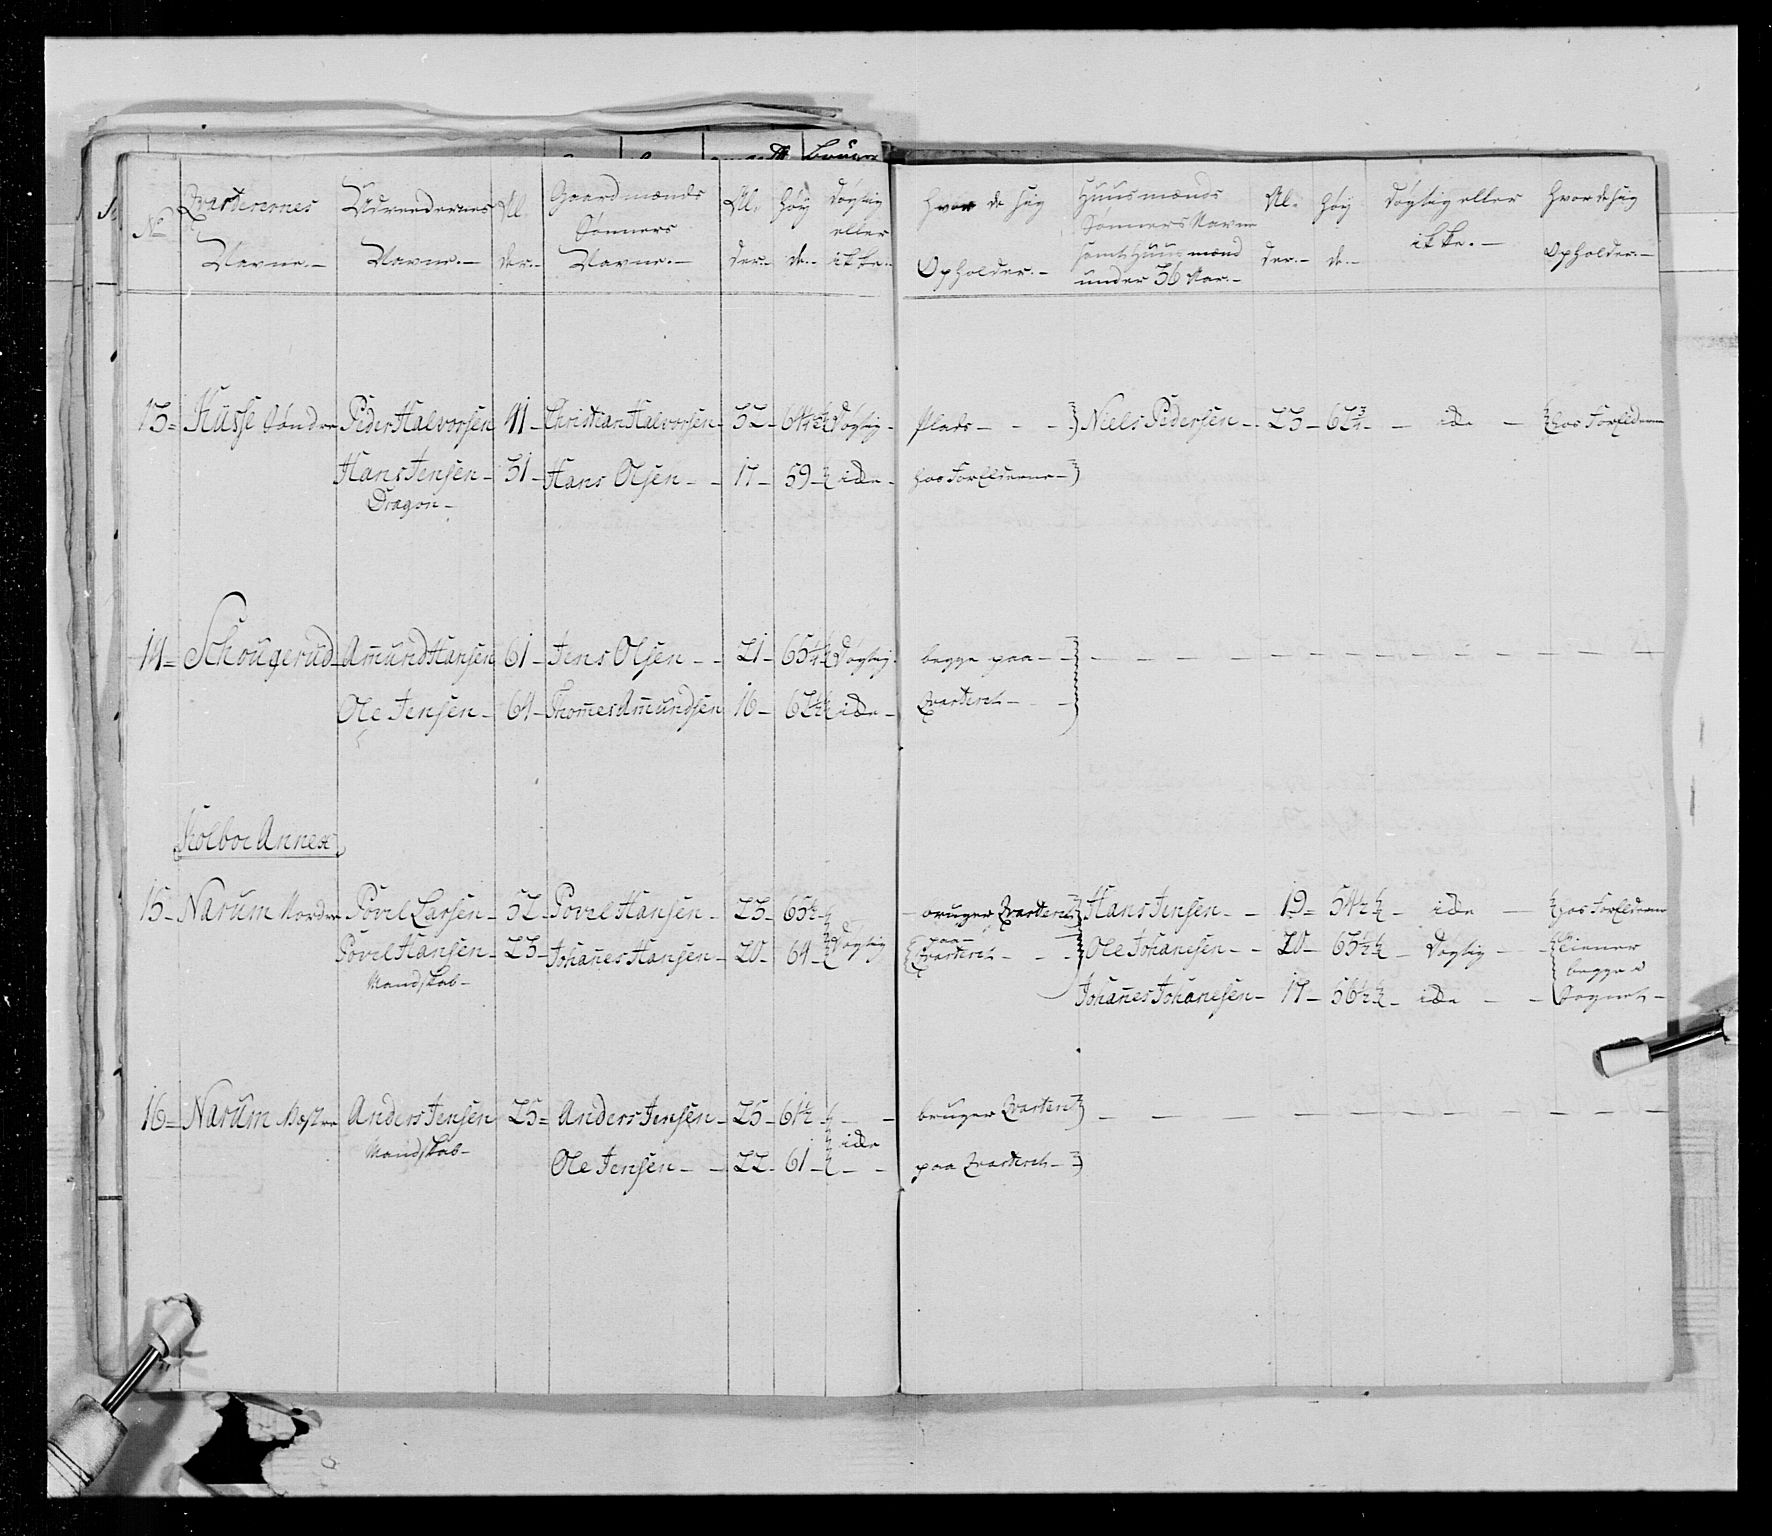 No Qvarterernes Navne.- Udreedernes Navne.- Al- der.- Gaardmænds Sønners Navne.- Al- der.- Høy de.- Døgtig eller ikke.- Hvor de sig Opholder.- Huusmænds Sønners Navne samt Huusmænd under 36 Aar.- Al- der.- Høy de.- Døgtig eller ikke.- Hvor de sig Opholder.-
13- Küsse Søndre Peder Halvorsen 41- Christian Halvorsen- 32- 64 1/4 Døgtig- Plads - - - Niels Pedersen- 23- 62 3/4- - ide - hos Forelderne
Hans Jensen- 31- Hans Olsen - - 17- 59- ide- hos Forelderne-
Dragon-
14- Schougerud Amund Hansen 61- Jens Olsen - - 21- 65 1/4 Døgtig- begge paa - -
Ole Jensen- 64- Thomes Amundsen 16- 62 1/2 ide- Qvarteret- - -
Kolboe Annex
15- Narum Nordre Povel Larsen- 52- Povel Hansen- 23- 65 1/2- - bruger Qvarteret Hans Jensen - - 19- 54 1/2 - ide - hos Forelderne
Povel Hansen- 23- Johanes Hansen- 20- 64- Døgtig paa Qvarteret- - - Ole Johanesen - - 20- 63 1/2 - Døgtig - tiener
Mandskab- begge i
Johanes Johanesen- 17- 56 1/2 - ide - - Sognet-
16- Narum Vestre Anders Jensen 25- Anders Jensen- 25- 61 1/2 - - bruger Qvarteret
Mandskab- ide
Ole Jensen - - 22- 61- - - paa Qvarteret-